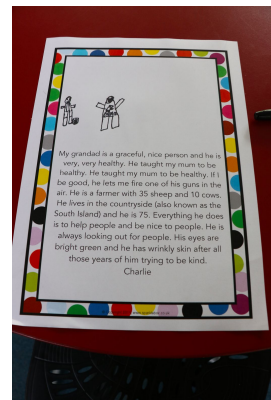 My grandad is a graceful, nice person and he is
very, very healthy. He taught my mum to be
healthy. He taught my mum to be healthy. If I
be good, he lets me fire one of his guns in the
air. He is a farmer with 35 sheep and 10 cows.
He lives in the countryside (also known as the
South Island) and he is 75. Everything he does
is to help people and be nice to people. He is
always looking out for people. His eyes are
bright green and he has wrinkly skin after all
those years of him trying to be kind.
Charlie